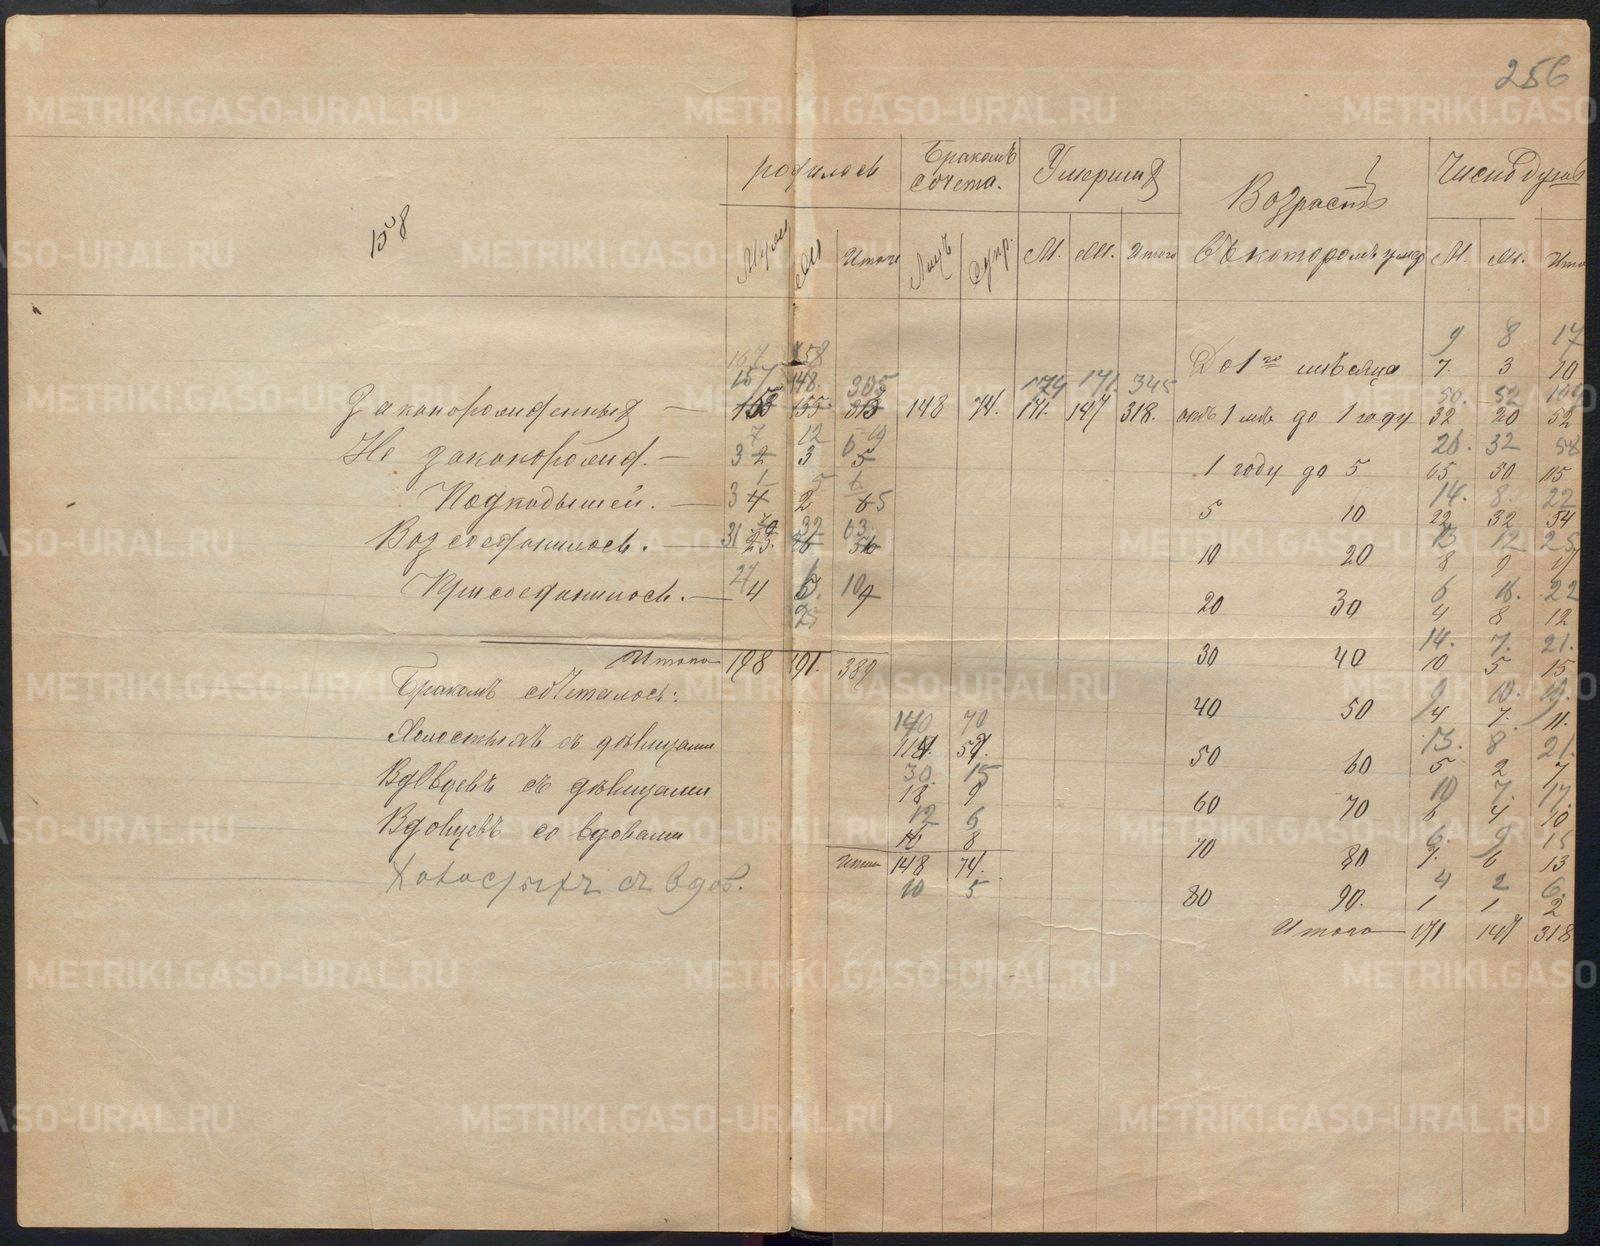 256
METRIKI.GASO-URAL.RU
родилось Бракомъ сочета. Умершихъ Возрастъ Число душъ
158
Итого Лицъ Супр. М. Ж. Итого въ которомъ умер. М. Ж. Итого
9 8 17
До 1го мѣсяца 7. 3 10
157 148. 305 174 171. 345
Законорожденныхъ — 155 313 148 74. 171. 147 318.
50. 52
отъ 1 мѣс до 1 году 32 20 52
7 12
Не законорожд. — 3 2 3 5
26. 32 58
1 году до 5 65 50 115
Подкидышей. — 3 4 2 5
14. 8. 22
5 10 22 32 54
32 63.
Возсоединилось. — 31
12 25
10 20 8 9 17
Присоединилось. — 4 5
6 16. 22
20 30 4 8 12
25
14. 7. 21.
Итого 198 191. 389
30 40 10 5 15
Бракомъ сочеталось:
9 10. 19.
40 50 4 7. 11.
140 70
Холостыхъ съ дѣвицами 114 57.
13. 8 21.
50 60 5 2 7
30. 15
Вдовцевъ съ дѣвицами 18 9
10 7. 17.
60 70 6 4 10
12 6
Вдовцевъ со вдовами 16 8
6. 9 15
70 80 7. 6 13
Итого 148 74.
Холостыхъ съ вдов. 10 5
4 2 6.
80 90. 1 1 2
Итого — 171 147 318